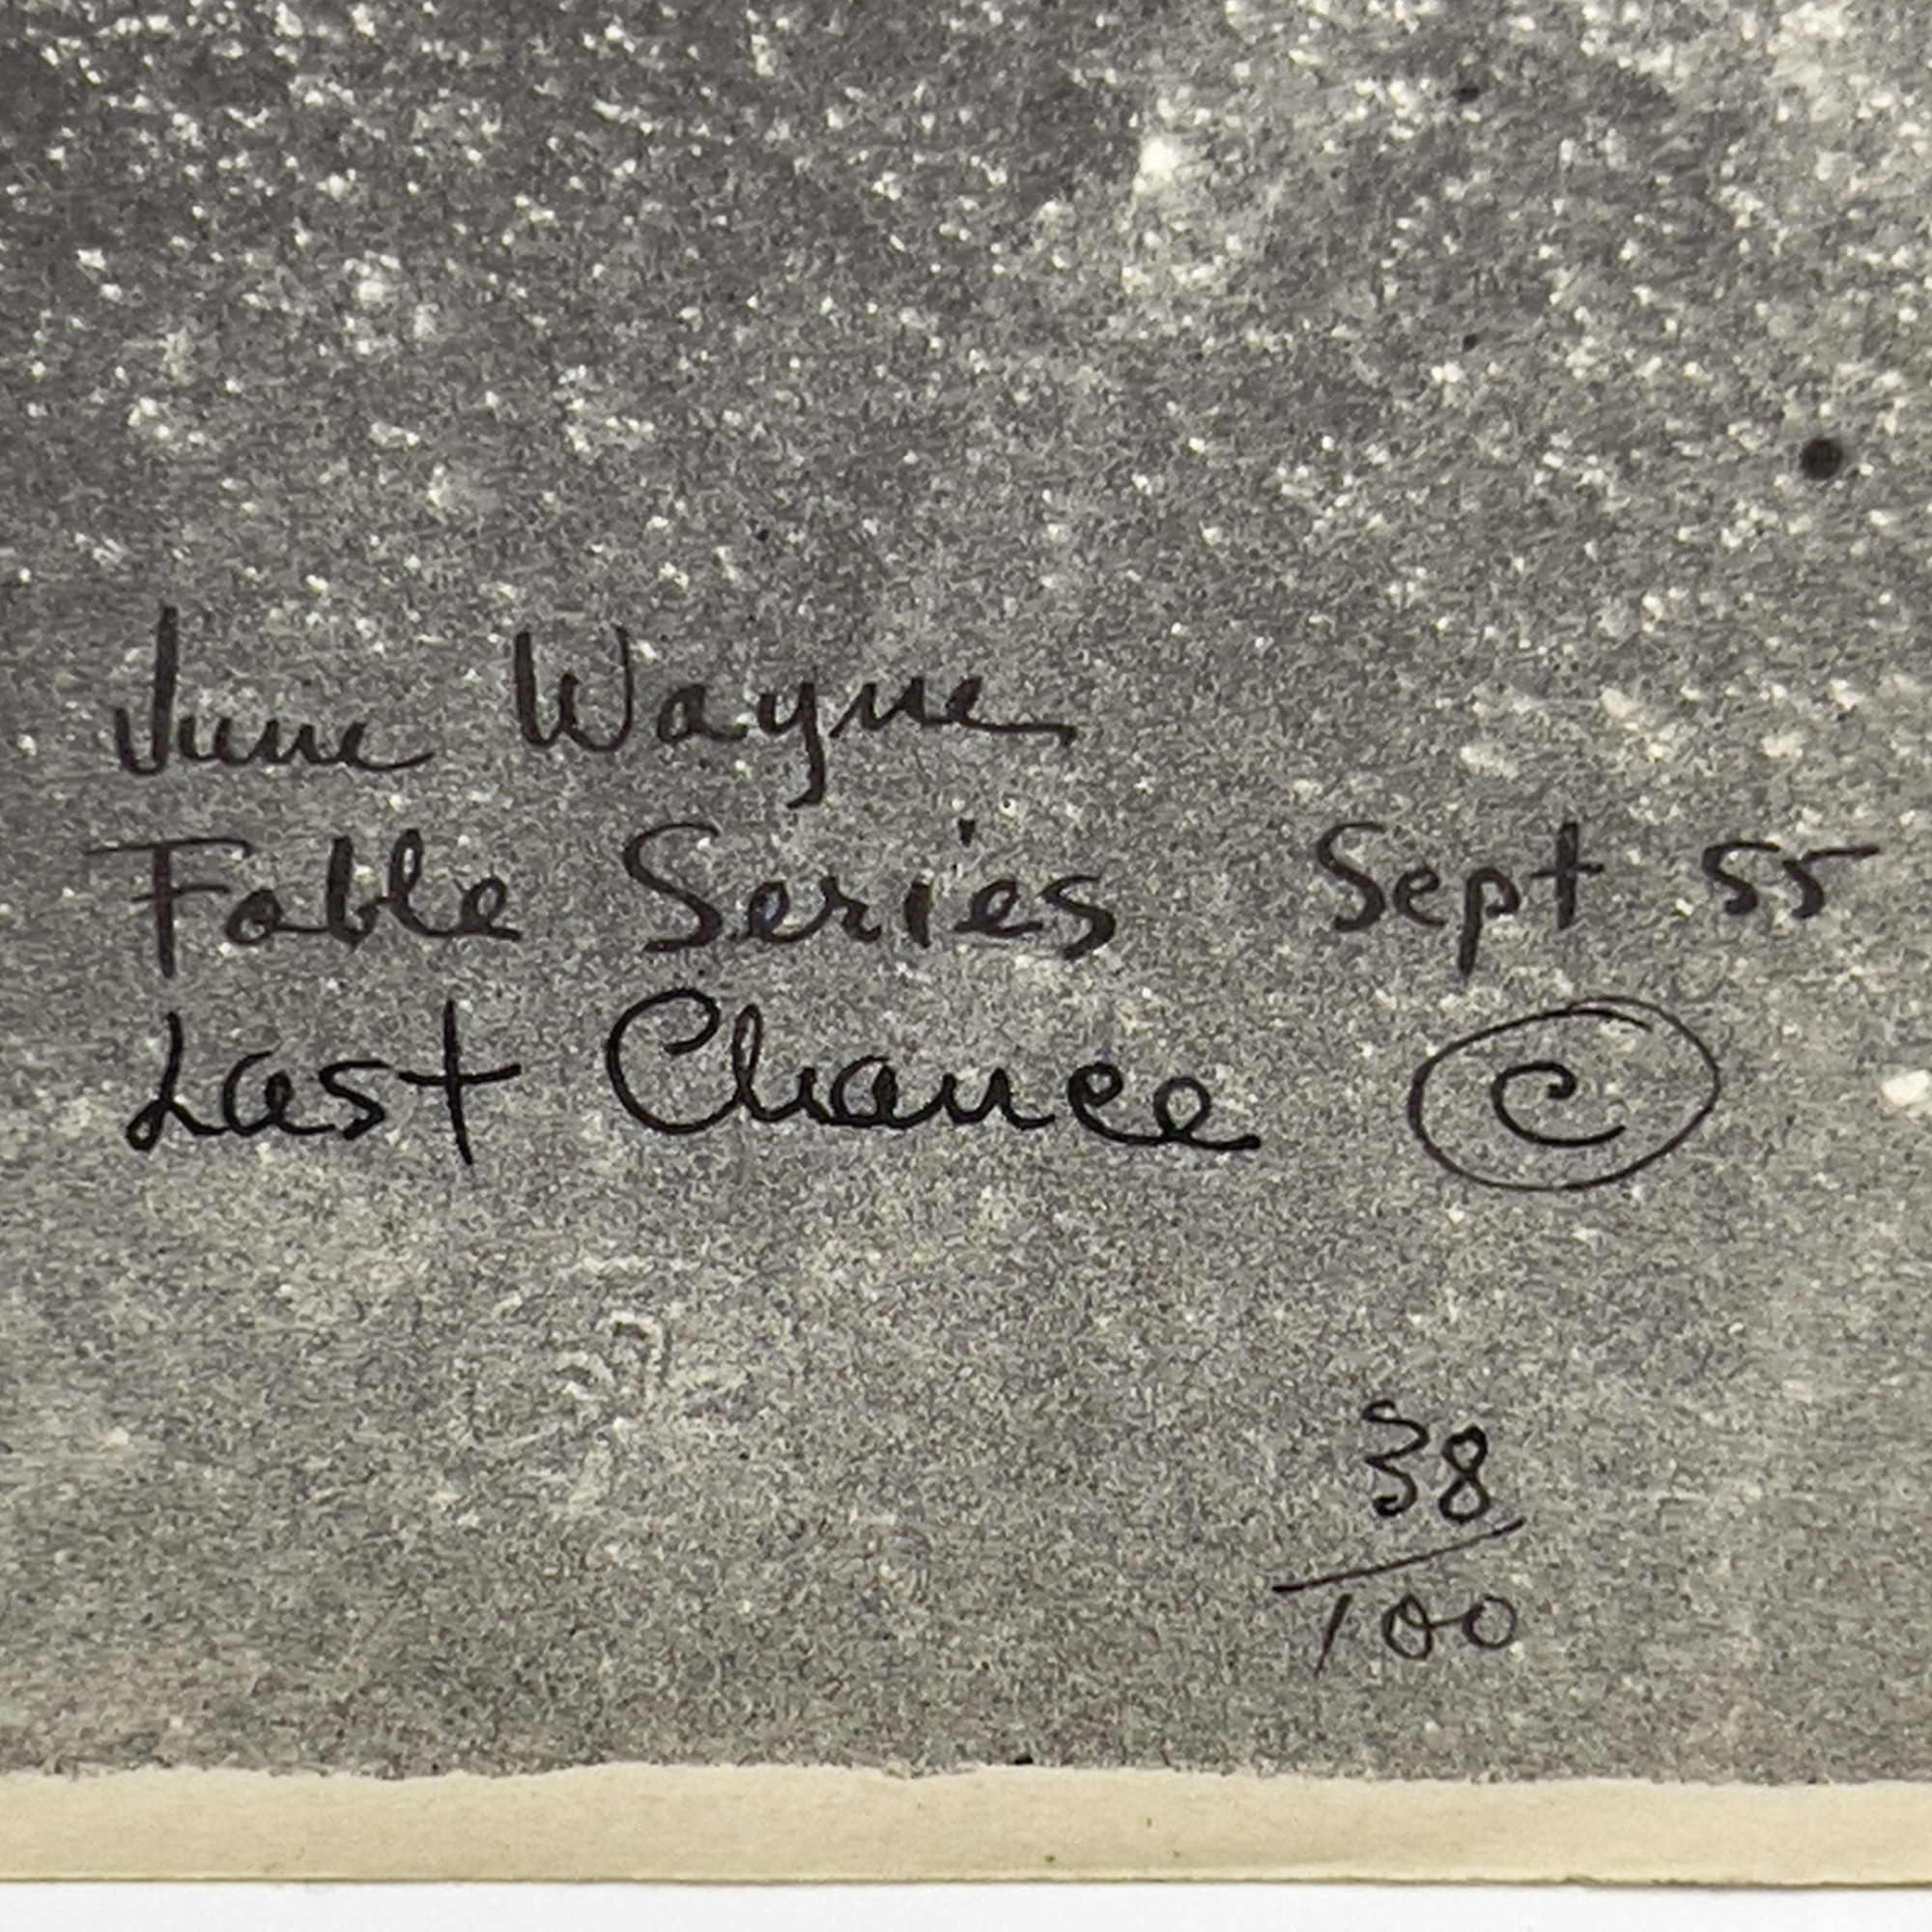 June Wayne
Fable Series Sept 55
Last Chance ©
38
100